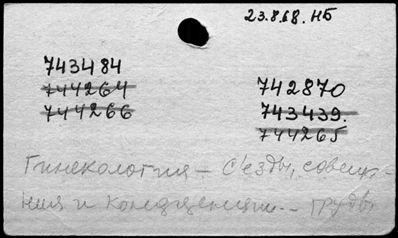 23.8.68. НБ
743484
744264
744266
742870
743439.
744265
Гинекология - С'езды, совеща-
ния и конференции. - Труды